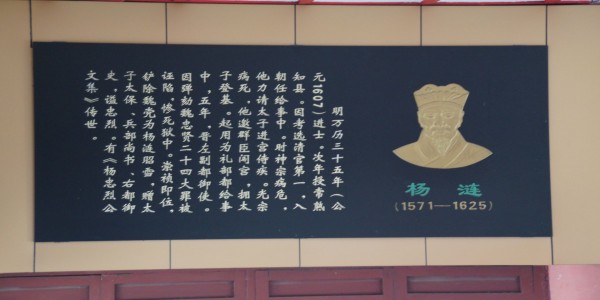 杨 涟
(1571—1625)
明万历三十五年(公
元1607)进士。次年授常熟
知县。因考选清官第一,入
朝任给事中。时神宗病危,
他力请太子进宫侍疾。光宗
病死,他邀群臣闯宫,拥太
子登基。起用为礼部都给事
中,五年,晋左副都御使。
因弹劾魏忠贤二十四大罪被
诬陷,惨死狱中。崇祯即位,
铲除魏党为杨涟昭雪,赠太
子太保、兵部尚书、右都御
史,谥忠烈。有《杨忠烈公
文集》传世。